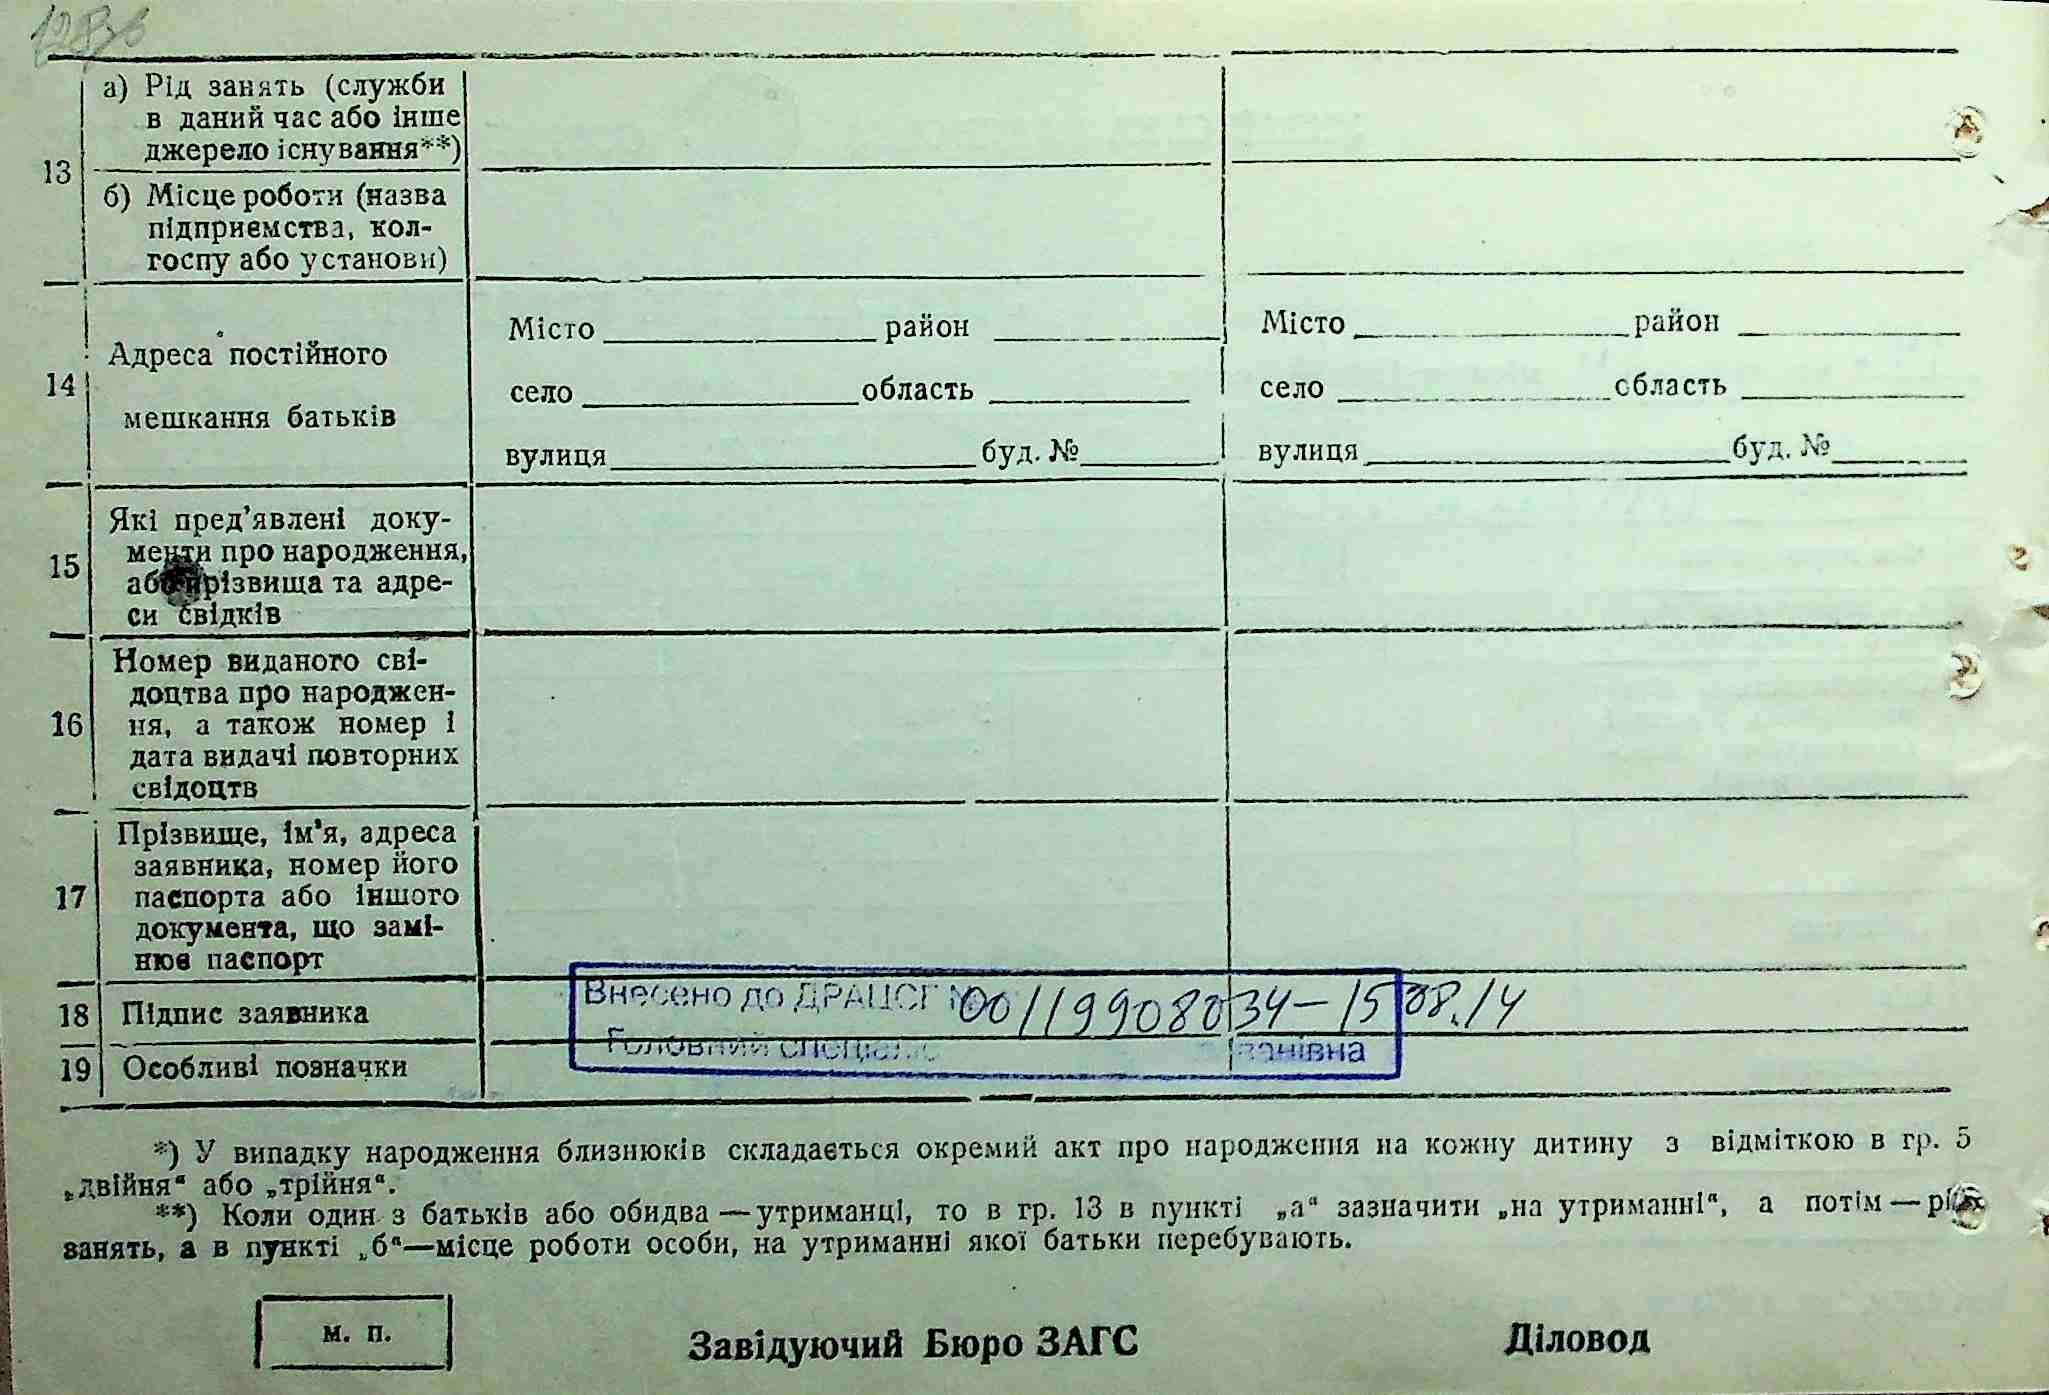 13
а) Рід занять (служби
в даний час або інше
джерело існування**)
б) Місце роботи (назва
підприємства, кол-
госпу або установи)
14
Адреса постійного
мешкання батьків
Місто район
село область
вулиця буд. №
Місто район
село область
вулиця буд. №
15
Які пред'явлені доку-
менти про народження,
або прізвища та адре-
си свідків
16
Номер виданого сві-
доцтва про народжен-
ня, а також номер і
дата видачі повторних
свідоцтв
17
Прізвище, ім'я, адреса
заявника, номер його
паспорта або іншого
документа, що замі-
нює паспорт
18 Підпис заявника
Внесено до ДРАЦСГ № 00119908034 – 15.08.14
19 Особливі позначки
Головний спеціаліс
*) У випадку народження близнюків складається окремий акт про народження на кожну дитину з відміткою в гр. 5
„двійня“ або „трійня“.
**) Коли один з батьків або обидва — утриманці, то в гр. 13 в пункті „а“ зазначити „на утриманні“, а потім — рід
занять, а в пункті „б“—місце роботи особи, на утриманні якої батьки перебувають.
м. п.
Завідуючий Бюро ЗАГС
Діловод